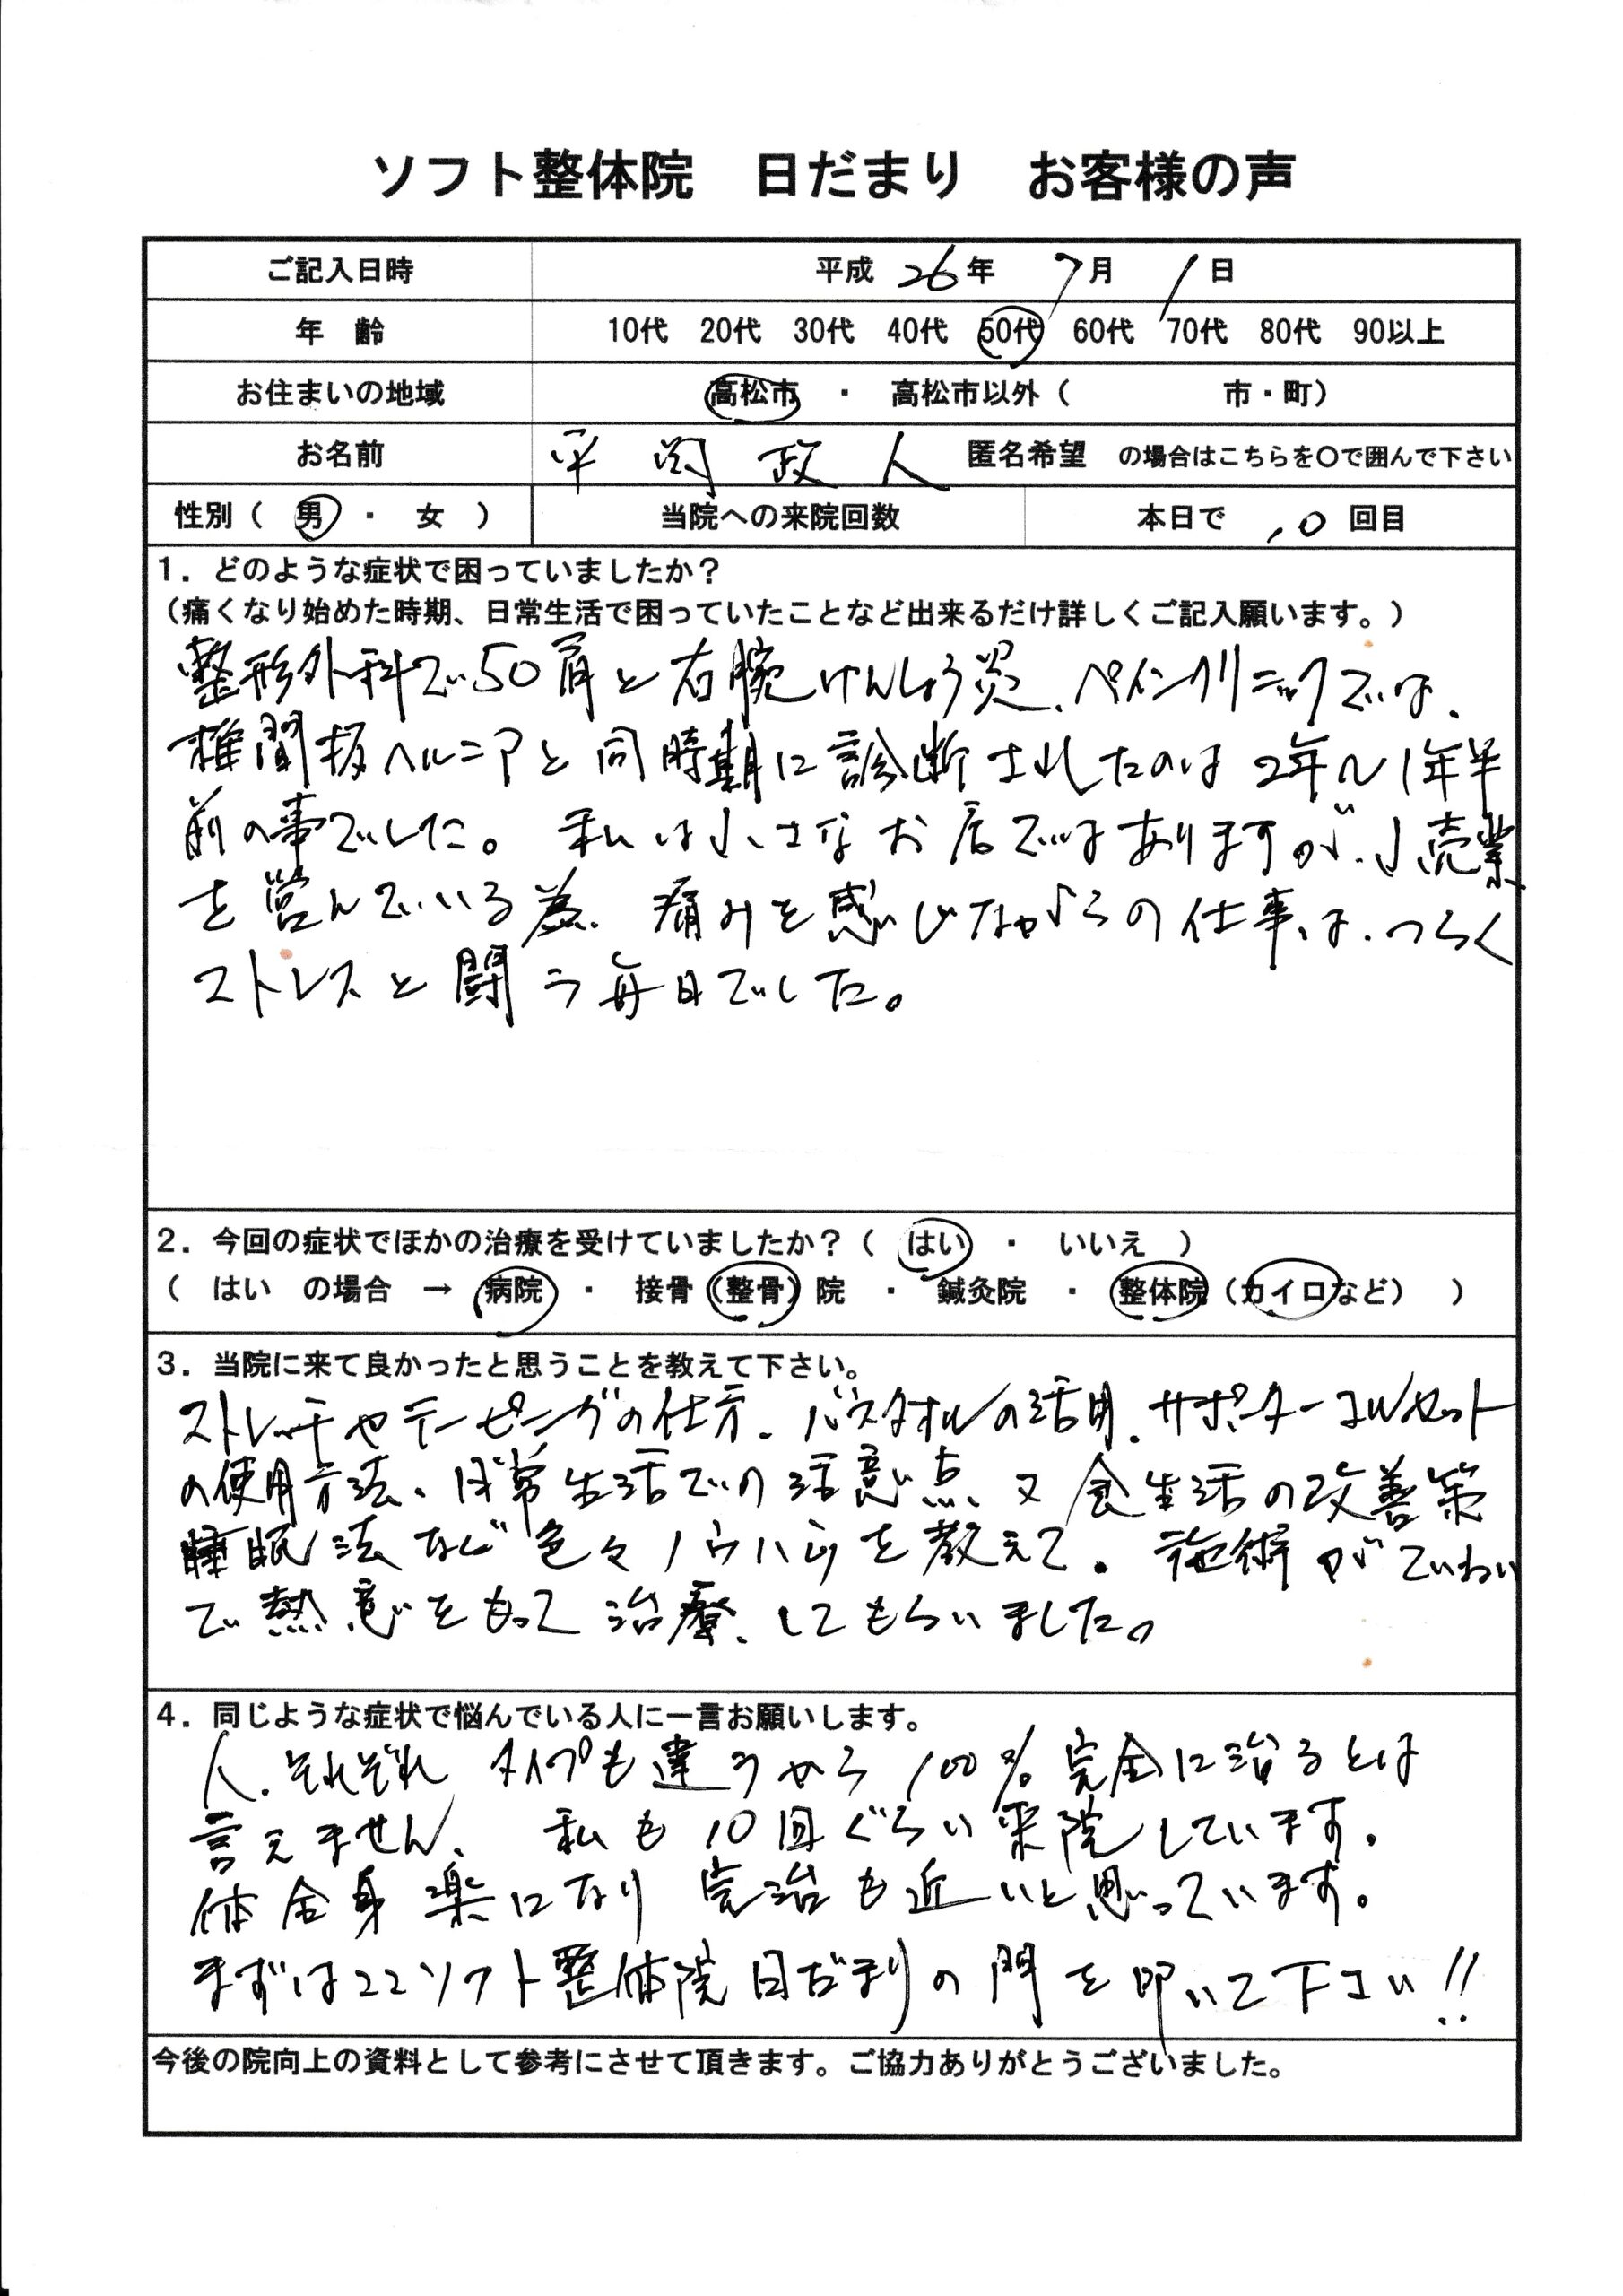 ソフト整体院　日だまり　お客様の声
ご記入日時　平成 26年 7月 1日
年　齢　10代　20代　30代　40代　50代　60代　70代　80代　90以上
お住まいの地域　高松市　・　高松市以外（　　　市・町）
お名前　平岡政人　匿名希望　の場合はこちらを〇で囲んで下さい
性別（　男　・　女　）　当院への来院回数　本日で　10　回目
1．どのような症状で困っていましたか？
（痛くなり始めた時期、日常生活で困っていたことなど出来るだけ詳しくご記入願います。）
整形外科で50肩と右腕けんしょう炎、ペインクリニックでは、
椎間板ヘルニアと同時期に診断されたのは2年〜1年半
前の事でした。私は小さなお店ではありますが、小売業
を営んでいる為、痛みを感じながらの仕事は、つらく
ストレスと闘う毎日でした。
2．今回の症状でほかの治療を受けていましたか？（　はい　・　いいえ　）
（　はい　の場合　→　病院　・　接骨（整骨）院　・　鍼灸院　・　整体院（カイロなど）　）
3．当院に来て良かったと思うことを教えて下さい。
ストレッチやテーピングの仕方、バスタオルの活用、サポーターコルセット
の使用方法、日常生活での注意点、又食生活の改善策
睡眠法など色々ノウハウを教えて。施術がていねい
で熱意をもって治療、してもらいました。
4．同じような症状で悩んでいる人に一言お願いします。
人、それぞれ タイプも違うから 100% 完全に治るとは
言えません、私も10回ぐらい来院しています。
体全身楽になり 完治も近いと思っています。
まずはココソフト整体院日だまりの門を叩いて下さい!!
今後の院向上の資料として参考にさせて頂きます。ご協力ありがとうございました。